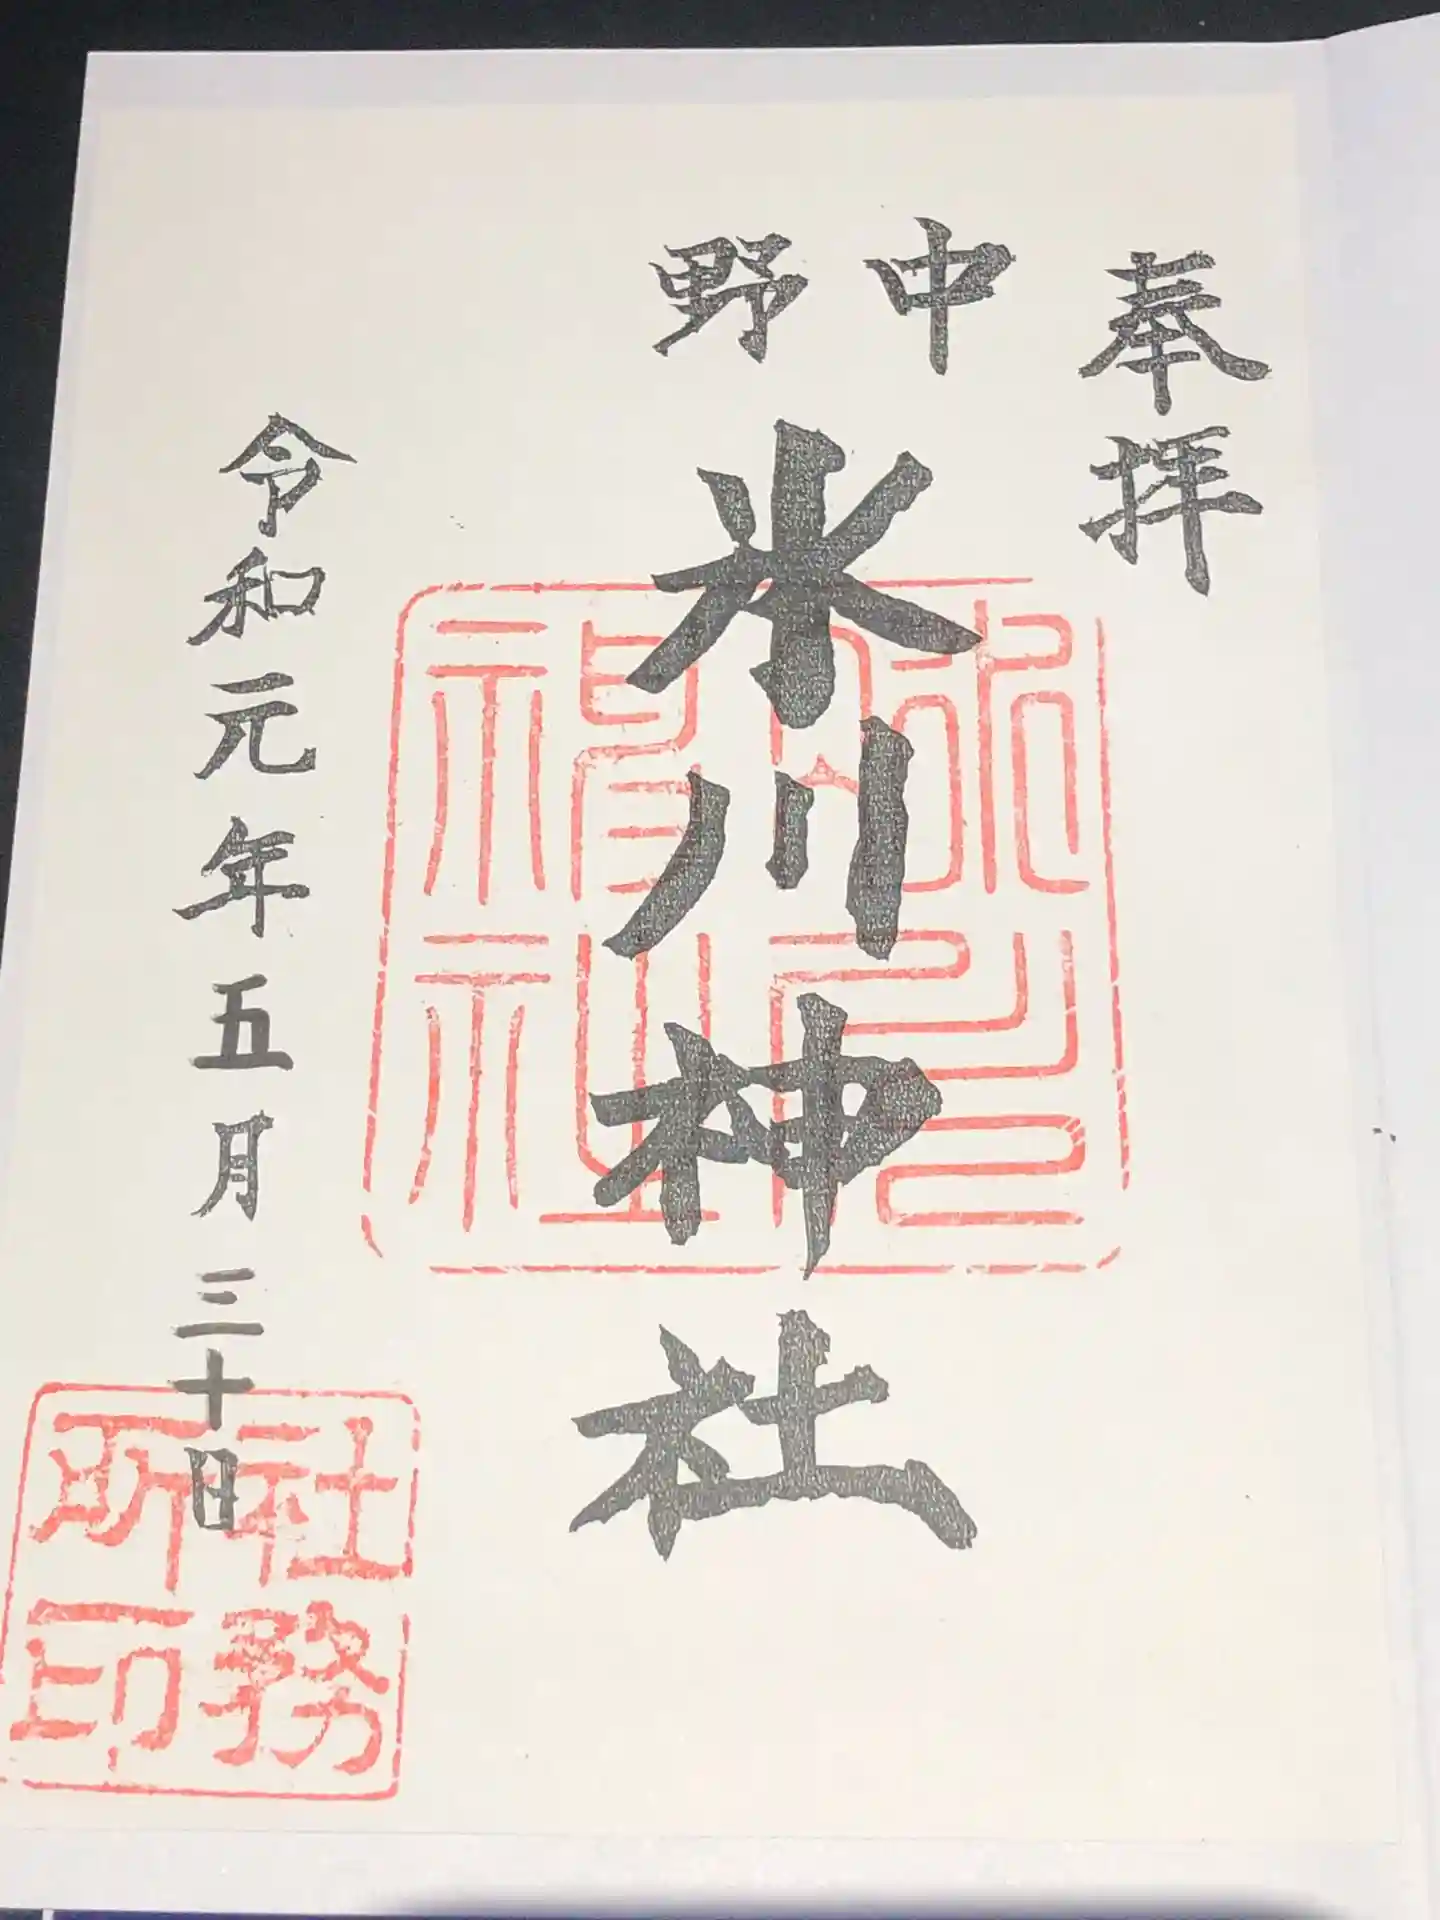 奉拝
中野
氷川神社
令和元年五月三十日
社務
所印